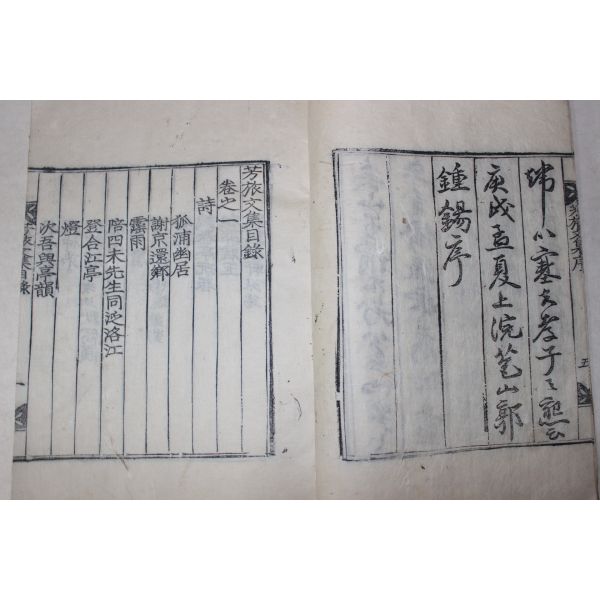 芳旅文集序
五
以塞去孝子之懇云
庚戌孟夏上浣苞山郭
鍾錫序
芳旅文集目錄
卷之一
詩
孤浦幽居
謝京還鄉
雲雨
陪四未先生同泛洛江
登合江亭
燈
次吾與亭韻
芳旅文集目錄
一